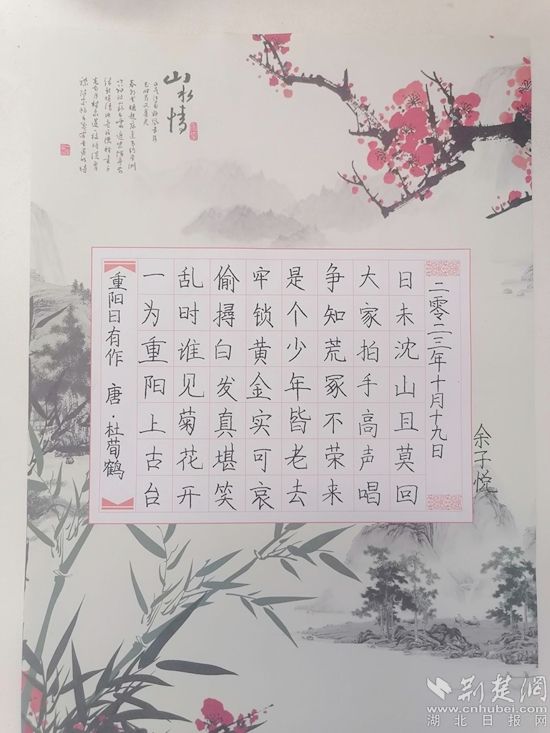 山水情
重阳日有作 唐·杜荀鹤
一为重阳上古台
乱时谁见菊花开
偷撏白发真堪笑
牢锁黄金实可哀
是个少年皆老去
争知荒冢不荣来
大家拍手高声唱
日未沈山且莫回
二零二三年十月十九日
余子悦
荆楚網
www.cnhubei.com
湖北日报网